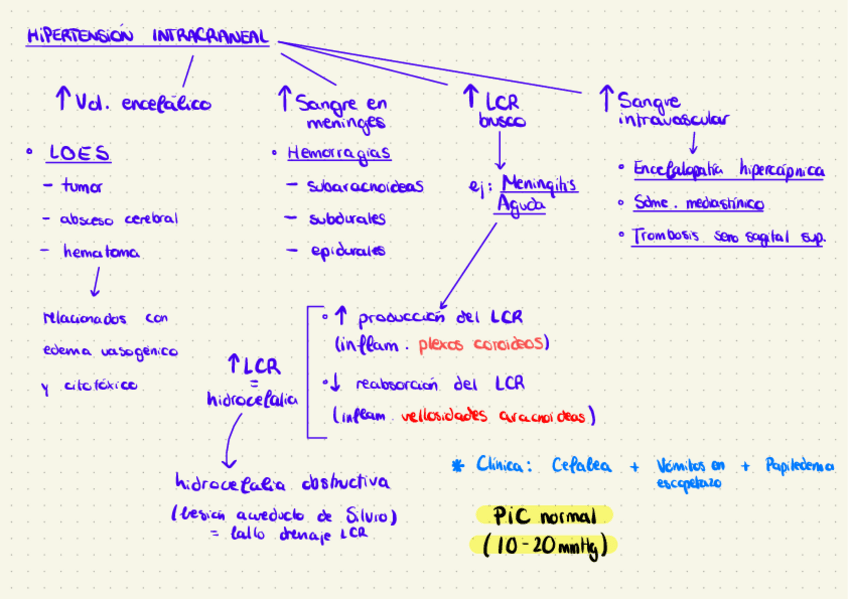 HIPERTENSIÓN INTRACRANEAL
↑ Vol. encefálico
• LOES
- tumor
- absceso cerebral
- hematoma
relacionados con
edema vasogénico
y citotóxico
↑ Sangre en
meninges
• Hemorragias
- subaracnoideas
- subdurales
- epidurales
↑ LCR
busco
ej: Meningitis
Aguda
↑ Sangre
intravascular
• Encefalopatía hipercápnica
• Sdme. mediastínico
• Trombosis seno sagital sup.
↑ LCR
=
hidrocefalia
• ↑ producción del LCR
(inflam. plexos coroideos)
• ↓ reabsorción del LCR
(inflam. vellosidades aracnoideas)
hidrocefalia obstructiva
(lesión acueducto de Silvio)
= fallo drenaje LCR
* Clínica: Cefalea + Vómitos en + Papiledema
escopetazo
PIC normal
(10-20 mmHg)